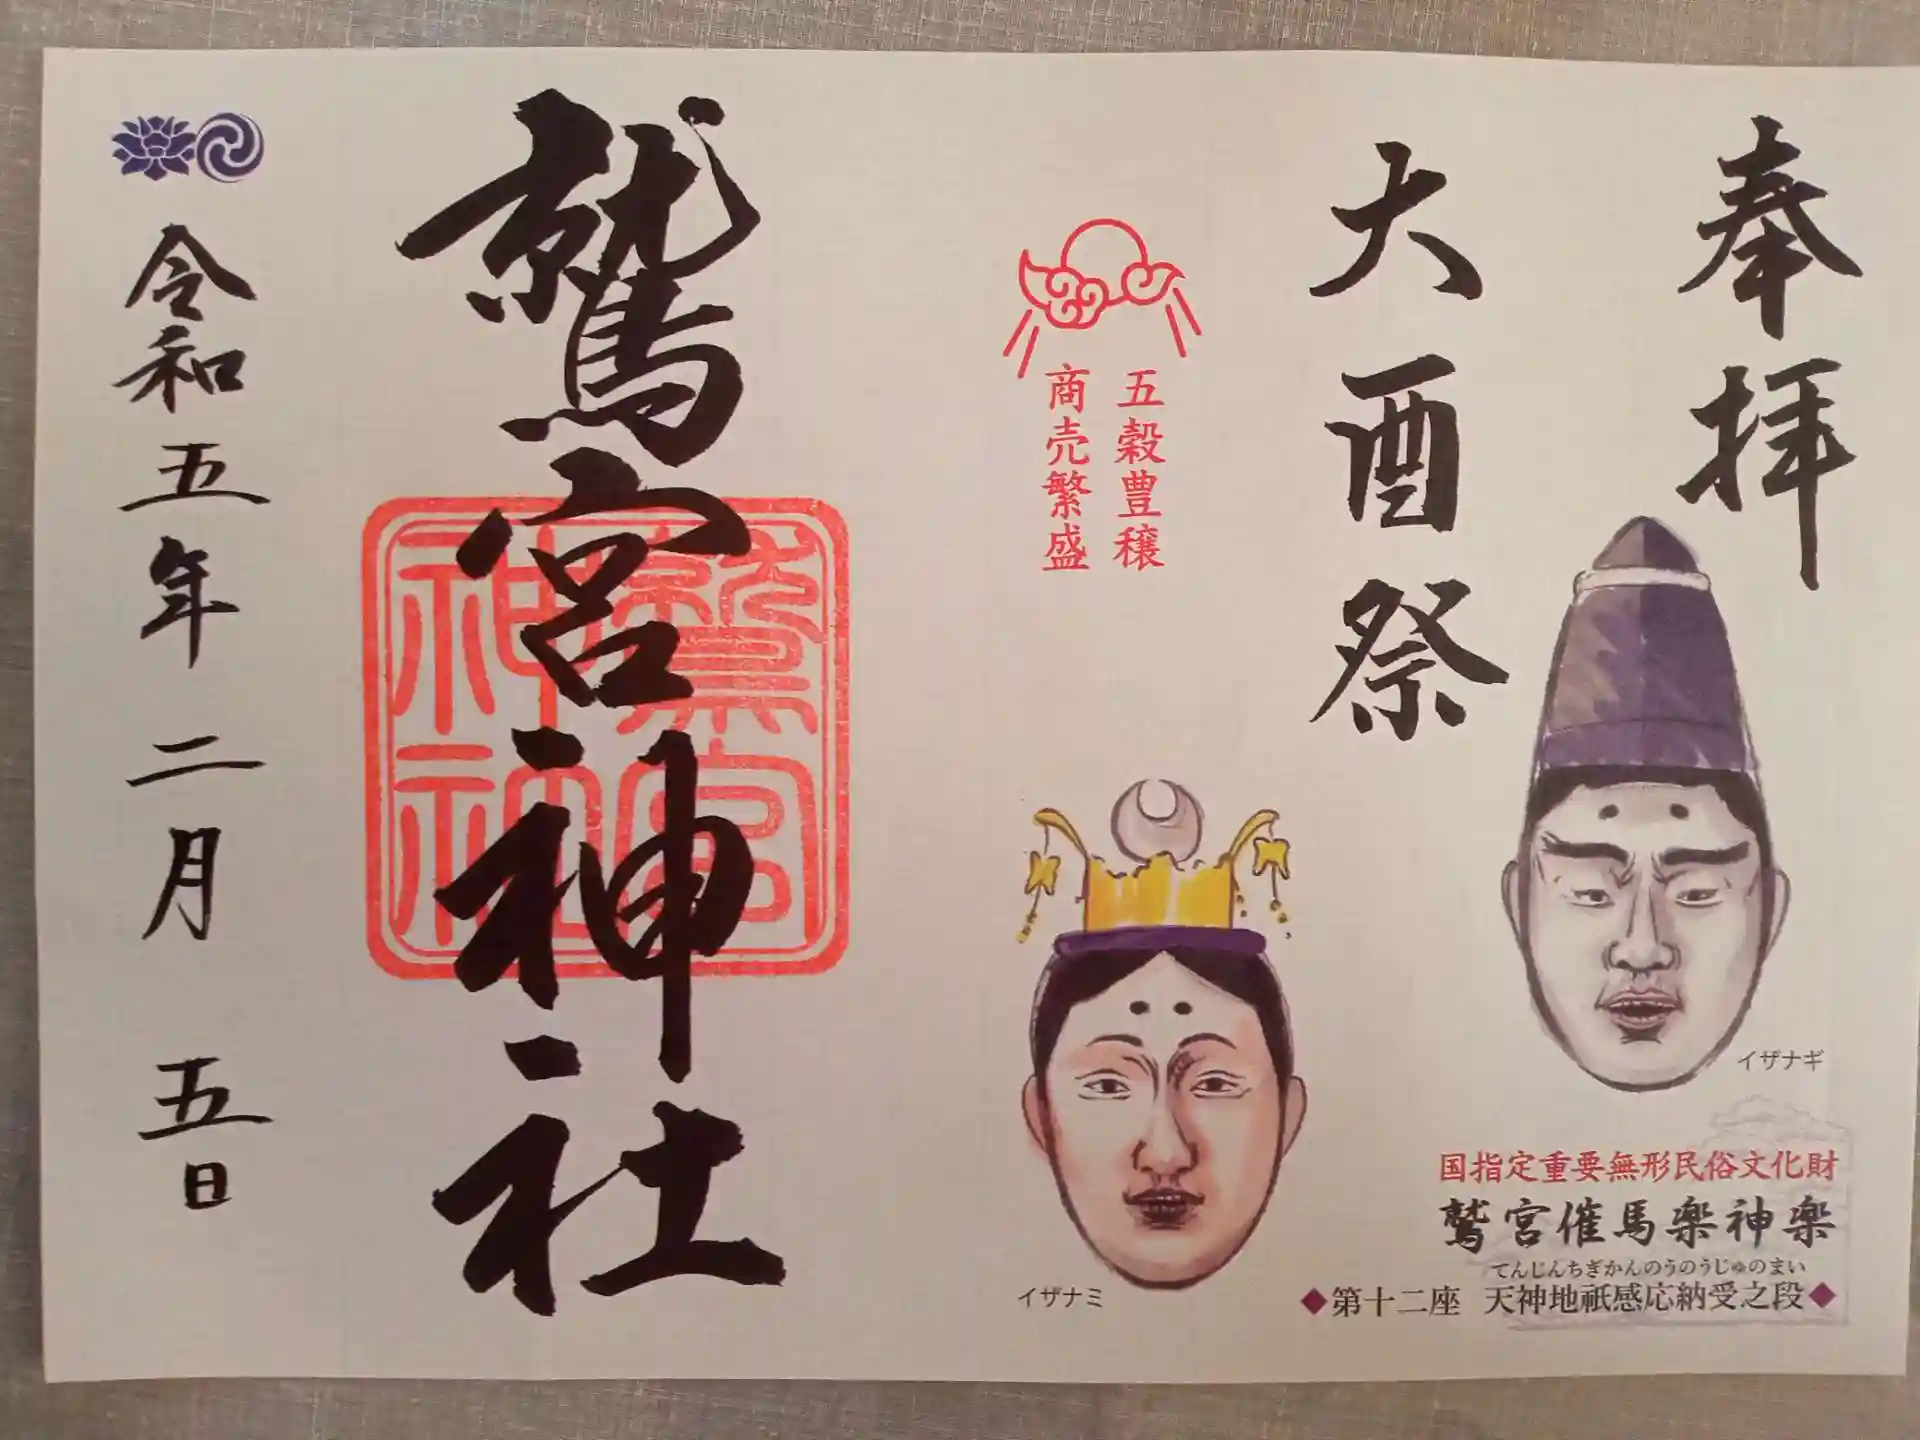 奉拝
大酉祭
五穀豊穣
商売繁盛
イザナギ
イザナミ
国指定重要無形民俗文化財
鷲宮催馬楽神楽
てんじんちぎかんのうのうじゅのまい
◆第十二座 天神地祇感応納受之段◆
鷲宮神社
鷲宮神社
令和五年二月五日